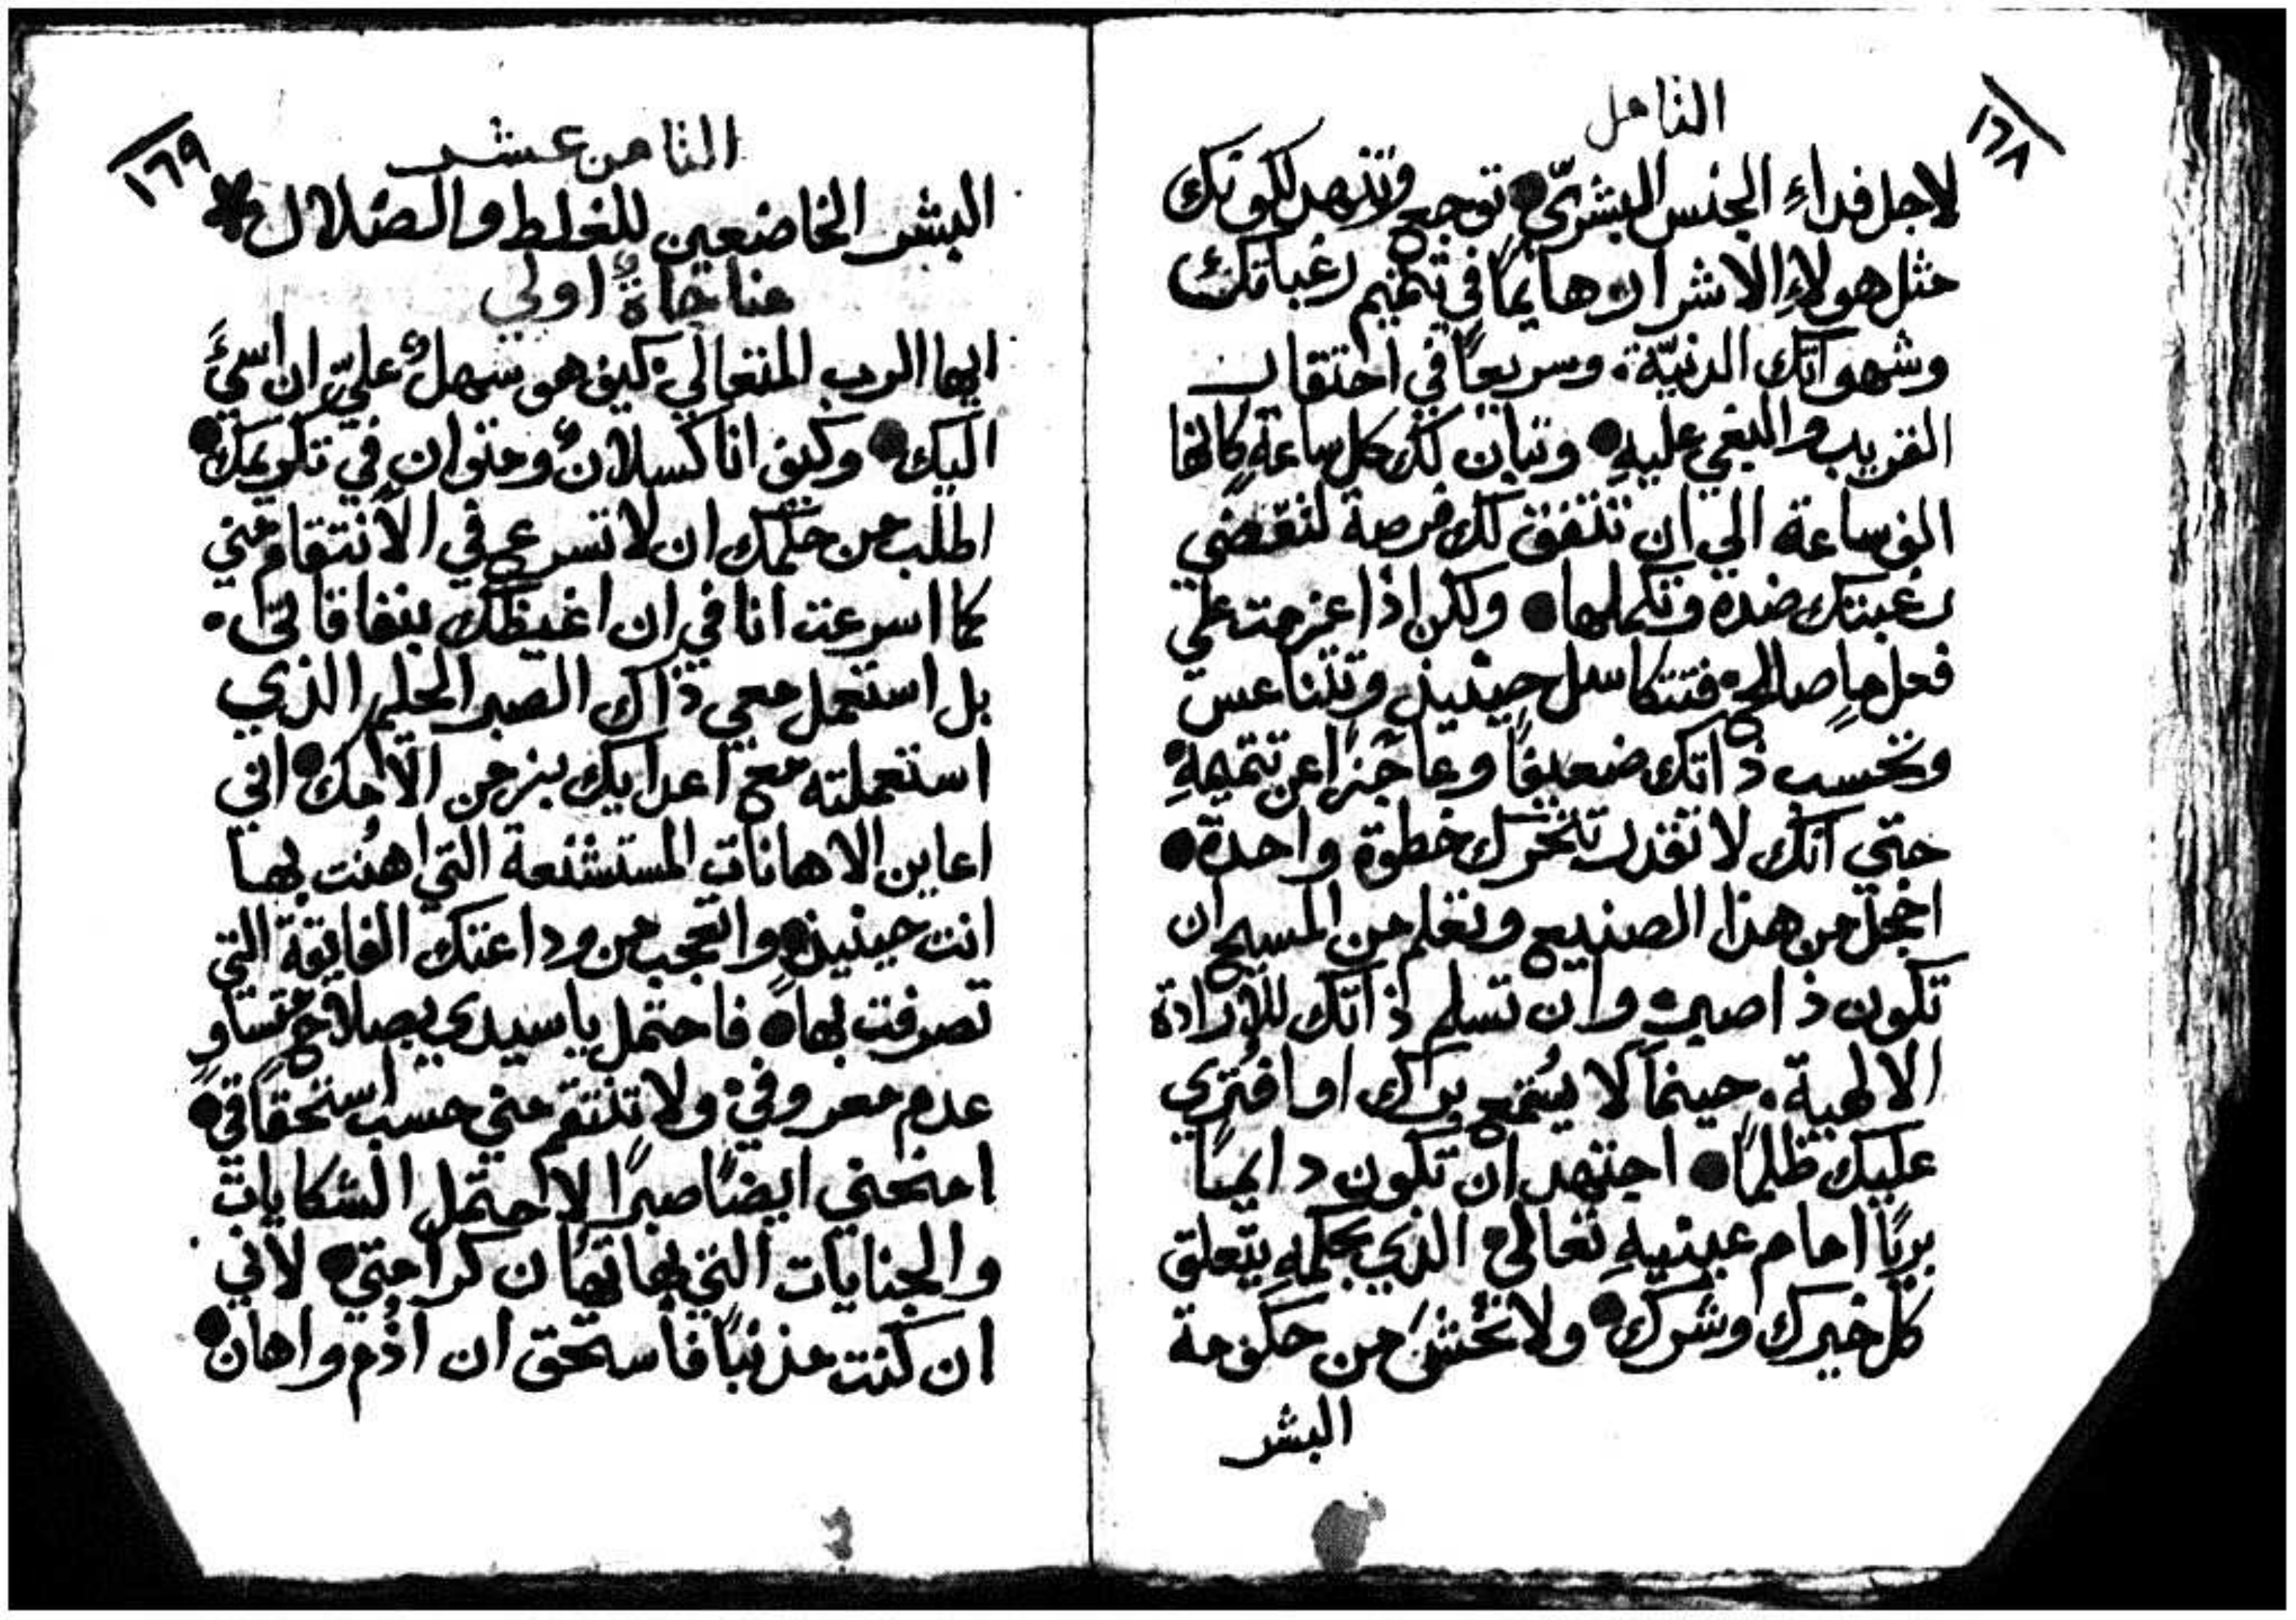 ١٦٨
التامل
لاجل فداءِ الجنس البشريّ • توجع وتنهد لكونك
مثل هولاءِ الاشرار وهايمًا في تتميم رغباتك
وشهواتك الدنيّة. وسريعًا في احتقار
القريب والبغي عليهِ • وتبان لك كل ساعةٍ كانها
الف ساعة الي ان تتفق لك فرصة لتقضي
رغبتك ضده وتكملها • ولكن اذا عزمت علي
فعل ما صالح فتتكاسل حينيذٍ وتتناعس
وتحسب ذاتك ضعيفًا وعاجزًا عن تتميمهِ
حتي انك لا تقدر تتحرك خطوة واحدة •
اخجل من هذا الصنيع وتعلم من المسيح ان
تكون ذا صبرٍ وان تسلم ذاتك للارادة
الالهية. حينما لا يُسمع برّك او افتُري
عليك ظلمًا • اجتهد ان تكون دايمًا
بريًا امام عينيهِ تعالي الذي بحكمهِ يتعلق
كل خيرك وشرك • ولا تخشَ من حكومة
البشر
١٦٩
الثامن عشر
البشر الخاضعين للغلط والضلال *
مناجاةٌ اولي
ايها الرب المتعالي كيف هو سهلٌ عليّ ان اسيَ
اليك • وكيف انا كسلانٌ ومتوانٍ في تكريمك •
اطلب من حلمك ان لا تسرع في الانتقام مني
كما اسرعت انا في ان اغيظك بنفاقاتي.
بل استعمل معي ذاك الصبر الحليم الذي
استعملته مع اعدايك بزمن الامك • اني
اعاين الاهانات المستشنعة التي اهُنت بها
انت حينيذٍ • واتعجب من وداعتك الفايقة التي
تصرفت بها • فاحتمل يا سيدي بصلاحٍ متساوٍ
عدم معروفي ولا تنتقم مني حسب استحقاقي •
امنحني ايضًا صبرًا لاحتمل الشكايات
والجنايات التي بها تهان كرامتي • لاني
ان كنت مذنبًا فاستحق ان اذُم واهان •